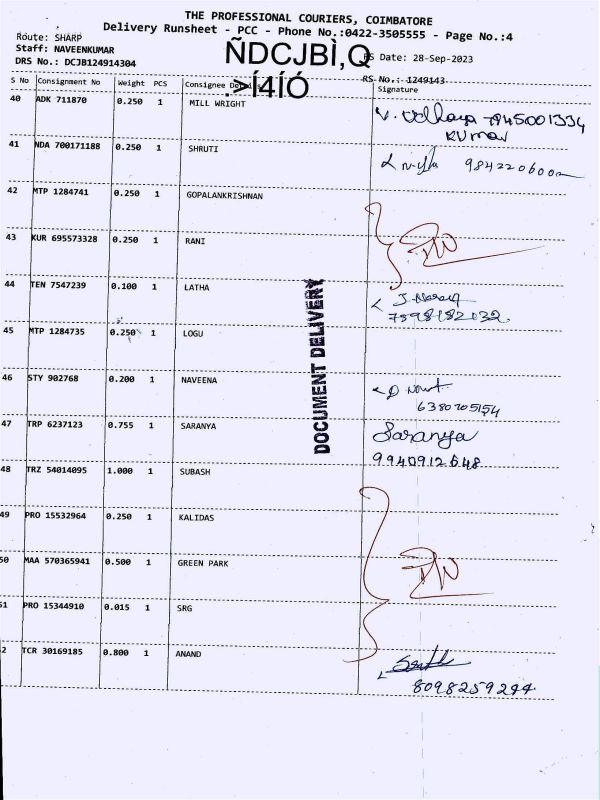 THE PROFESSIONAL COURIERS, COIMBATORE
Delivery Runsheet - PCC - Phone No.:0422-3505555 - Page No.:4
Route: SHARP
Staff: NAVEENKUMAR
DRS No.: DCJB124914304
ÑDCJBÌ,Q
.>Í4ÍÓ
RS Date: 28-Sep-2023
RS No.: 1249143
S No Consignment No Weight PCS Consignee Details Signature
40 ADK 711870 0.250 1 MILL WRIGHT 7945001334
KUMAR
41 NDA 700171188 0.250 1 SHRUTI
42 MTP 1284741 0.250 1 GOPALANKRISHNAN
43 KUR 695573328 0.250 1 RANI
44 TEN 7547239 0.100 1 LATHA
7598182032
45 MTP 1284735 0.250 1 LOGU
46 STY 902768 0.200 1 NAVEENA
6380705154
47 TRP 6237123 0.755 1 SARANYA Saranya
9940912648
48 TRZ 54014095 1.000 1 SUBASH
49 PRO 15532964 0.250 1 KALIDAS
50 MAA 570365941 0.500 1 GREEN PARK
51 PRO 15344910 0.015 1 SRG
52 TCR 30169185 0.800 1 ANAND
8098259244
DOCUMENT DELIVERY